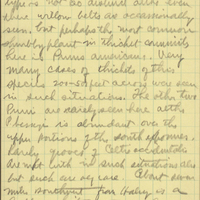 type is not as distinct although even
there willow belts are occasionally
seen, but perhaps the most common
shrubby plant in thicket communities
here is Prunus americana. Very
many cases of thickets of this
species 200-500 feet across were seen
in such situations. The other two
Pruni are rarely seen here altho
P. besseyi is abundant over the
upper portions of the south slopes.
Rarely groups of Celtis occidentalis
are met with in such situations also
but such are very rare. About seven
miles southwest from Halsey is a